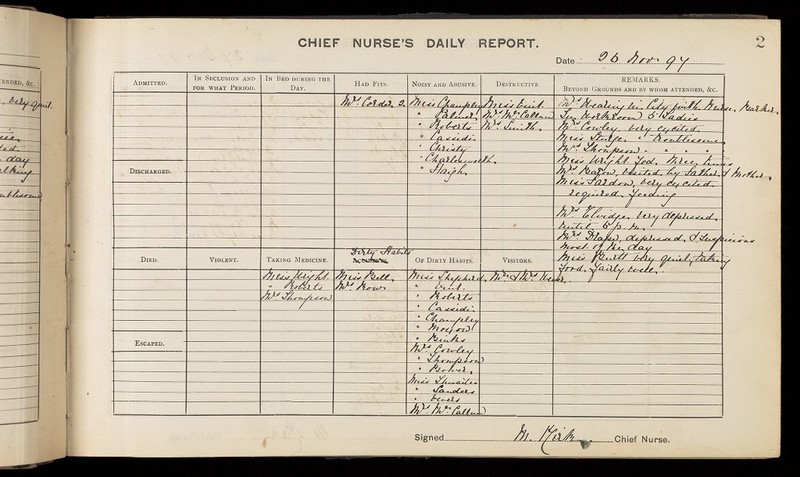 CHIEF NURSE'S DAILY REPORT.
2
Date 26 Nov 97
ADMITTED.
IN SECLUSION AND FOR WHAT PERIOD.
IN BED DURING THE DAY.
HAD FITS.
NOISY AND ABUSIVE.
DESTRUCTIVE.
REMARKS.
BEYOND GROUNDS AND BY WHOM ATTENDED, &C.
Mrs Corder 2.
Miss Champley
" Palmer
" Roberts
" Cassidi
" Christy
" Charlesworth
" Haigh
Miss
Mrs McCallum
Mrs Smith.
Mrs in City with Nurse
In Workroom 5 Ladies
Mrs Cowley very excited.
Miss " troublesome
Mrs Thompson " "
Miss Wright fed three times
Mrs visited by Father & Mother.
Miss very excited
required feeding
Mrs Elvidge very depressed
until 5 p.m.
Mrs depressed & suspicious
most of the day
Miss very quiet, taking
food fairly well.
DISCHARGED.
DIED.
VIOLENT.
TAKING MEDICINE.
Dirty Habits
OF DIRTY HABITS.
VISITORS.
Miss Wright
" Roberts
Mrs Thompson
Miss Bell
Mrs Row
Miss Shepherd
"
" Roberts
" Cassidi
" Champley
"
" Binks
Mrs Cowley
" Thompson
"
Miss Thwaites
" Sanders
"
Mrs McCallum
Mr & Mrs
ESCAPED.
Signed M. Kirk Chief Nurse.